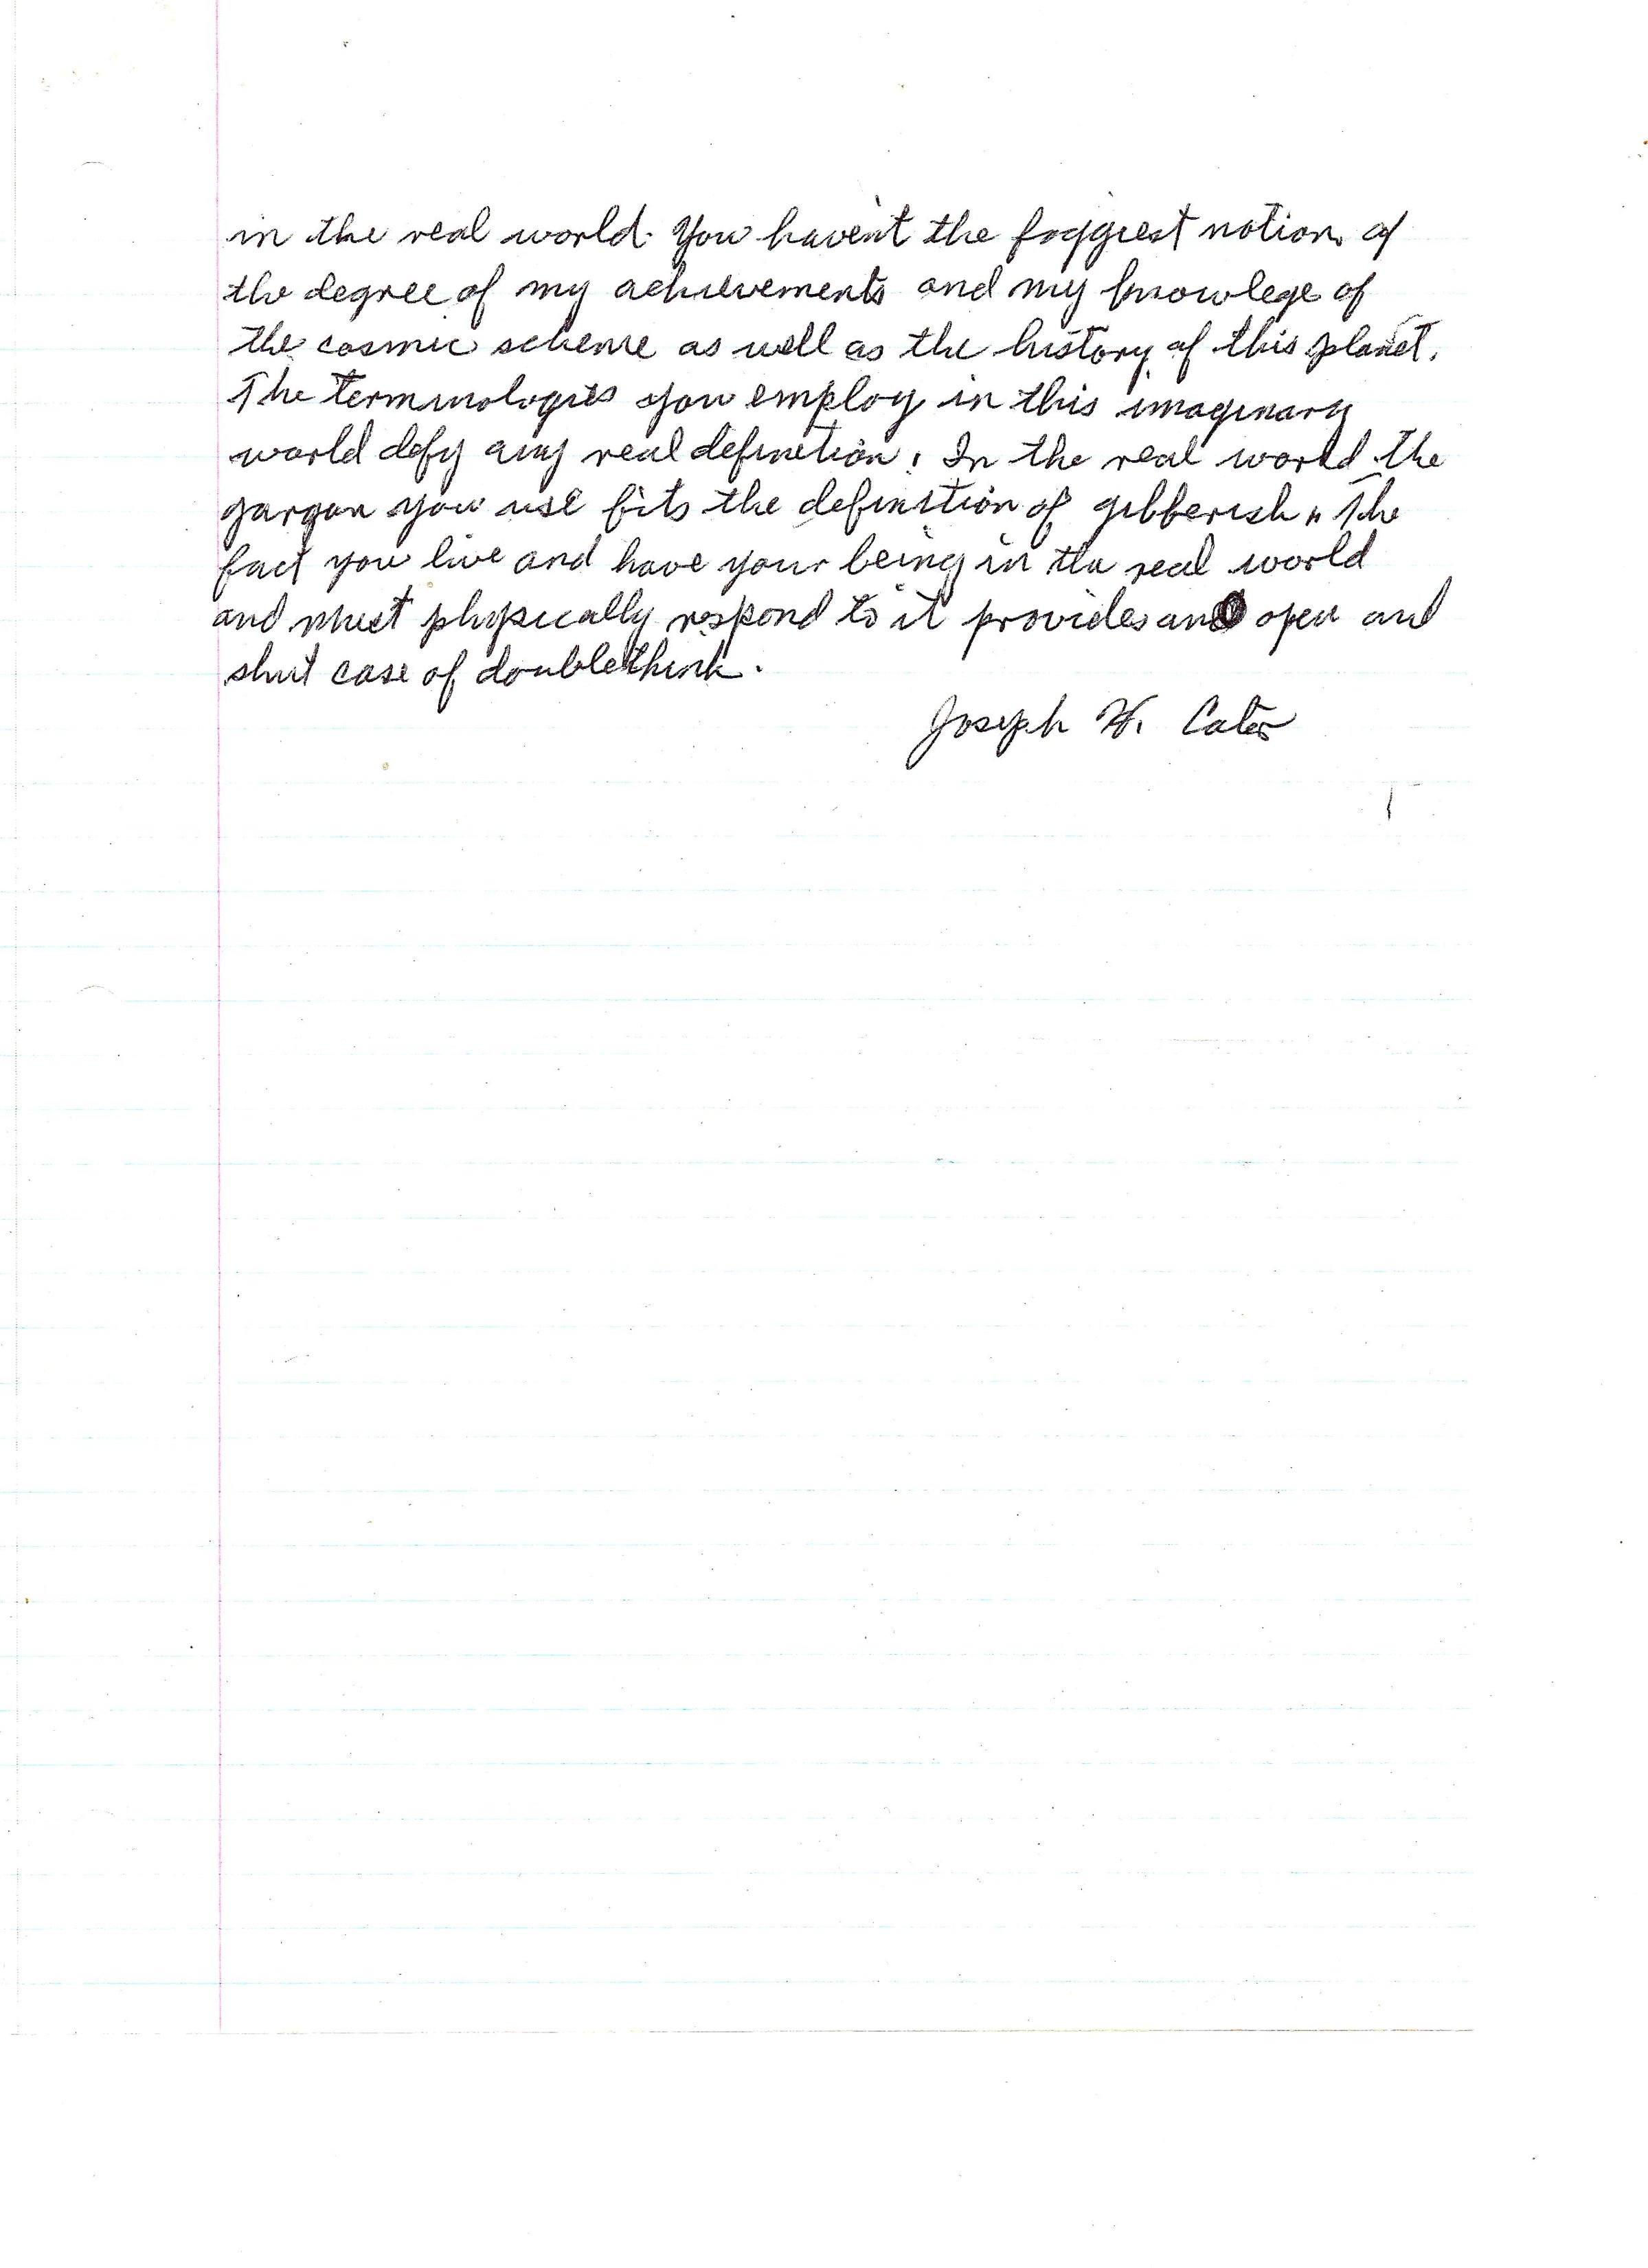 in the real world. You havent the foggiest notion of
the degree of my achievements and my knowlege of
the cosmic scheme as well as the history of this planet.
The terminologies you employ in this imaginary
world defy any real definetion. In the real world the
gargon you use fits the definition of gibberish. The
fact you live and have your being in the real world
and must physically respond to it provides an open and
shut case of doublethink.
Joseph H. Cater